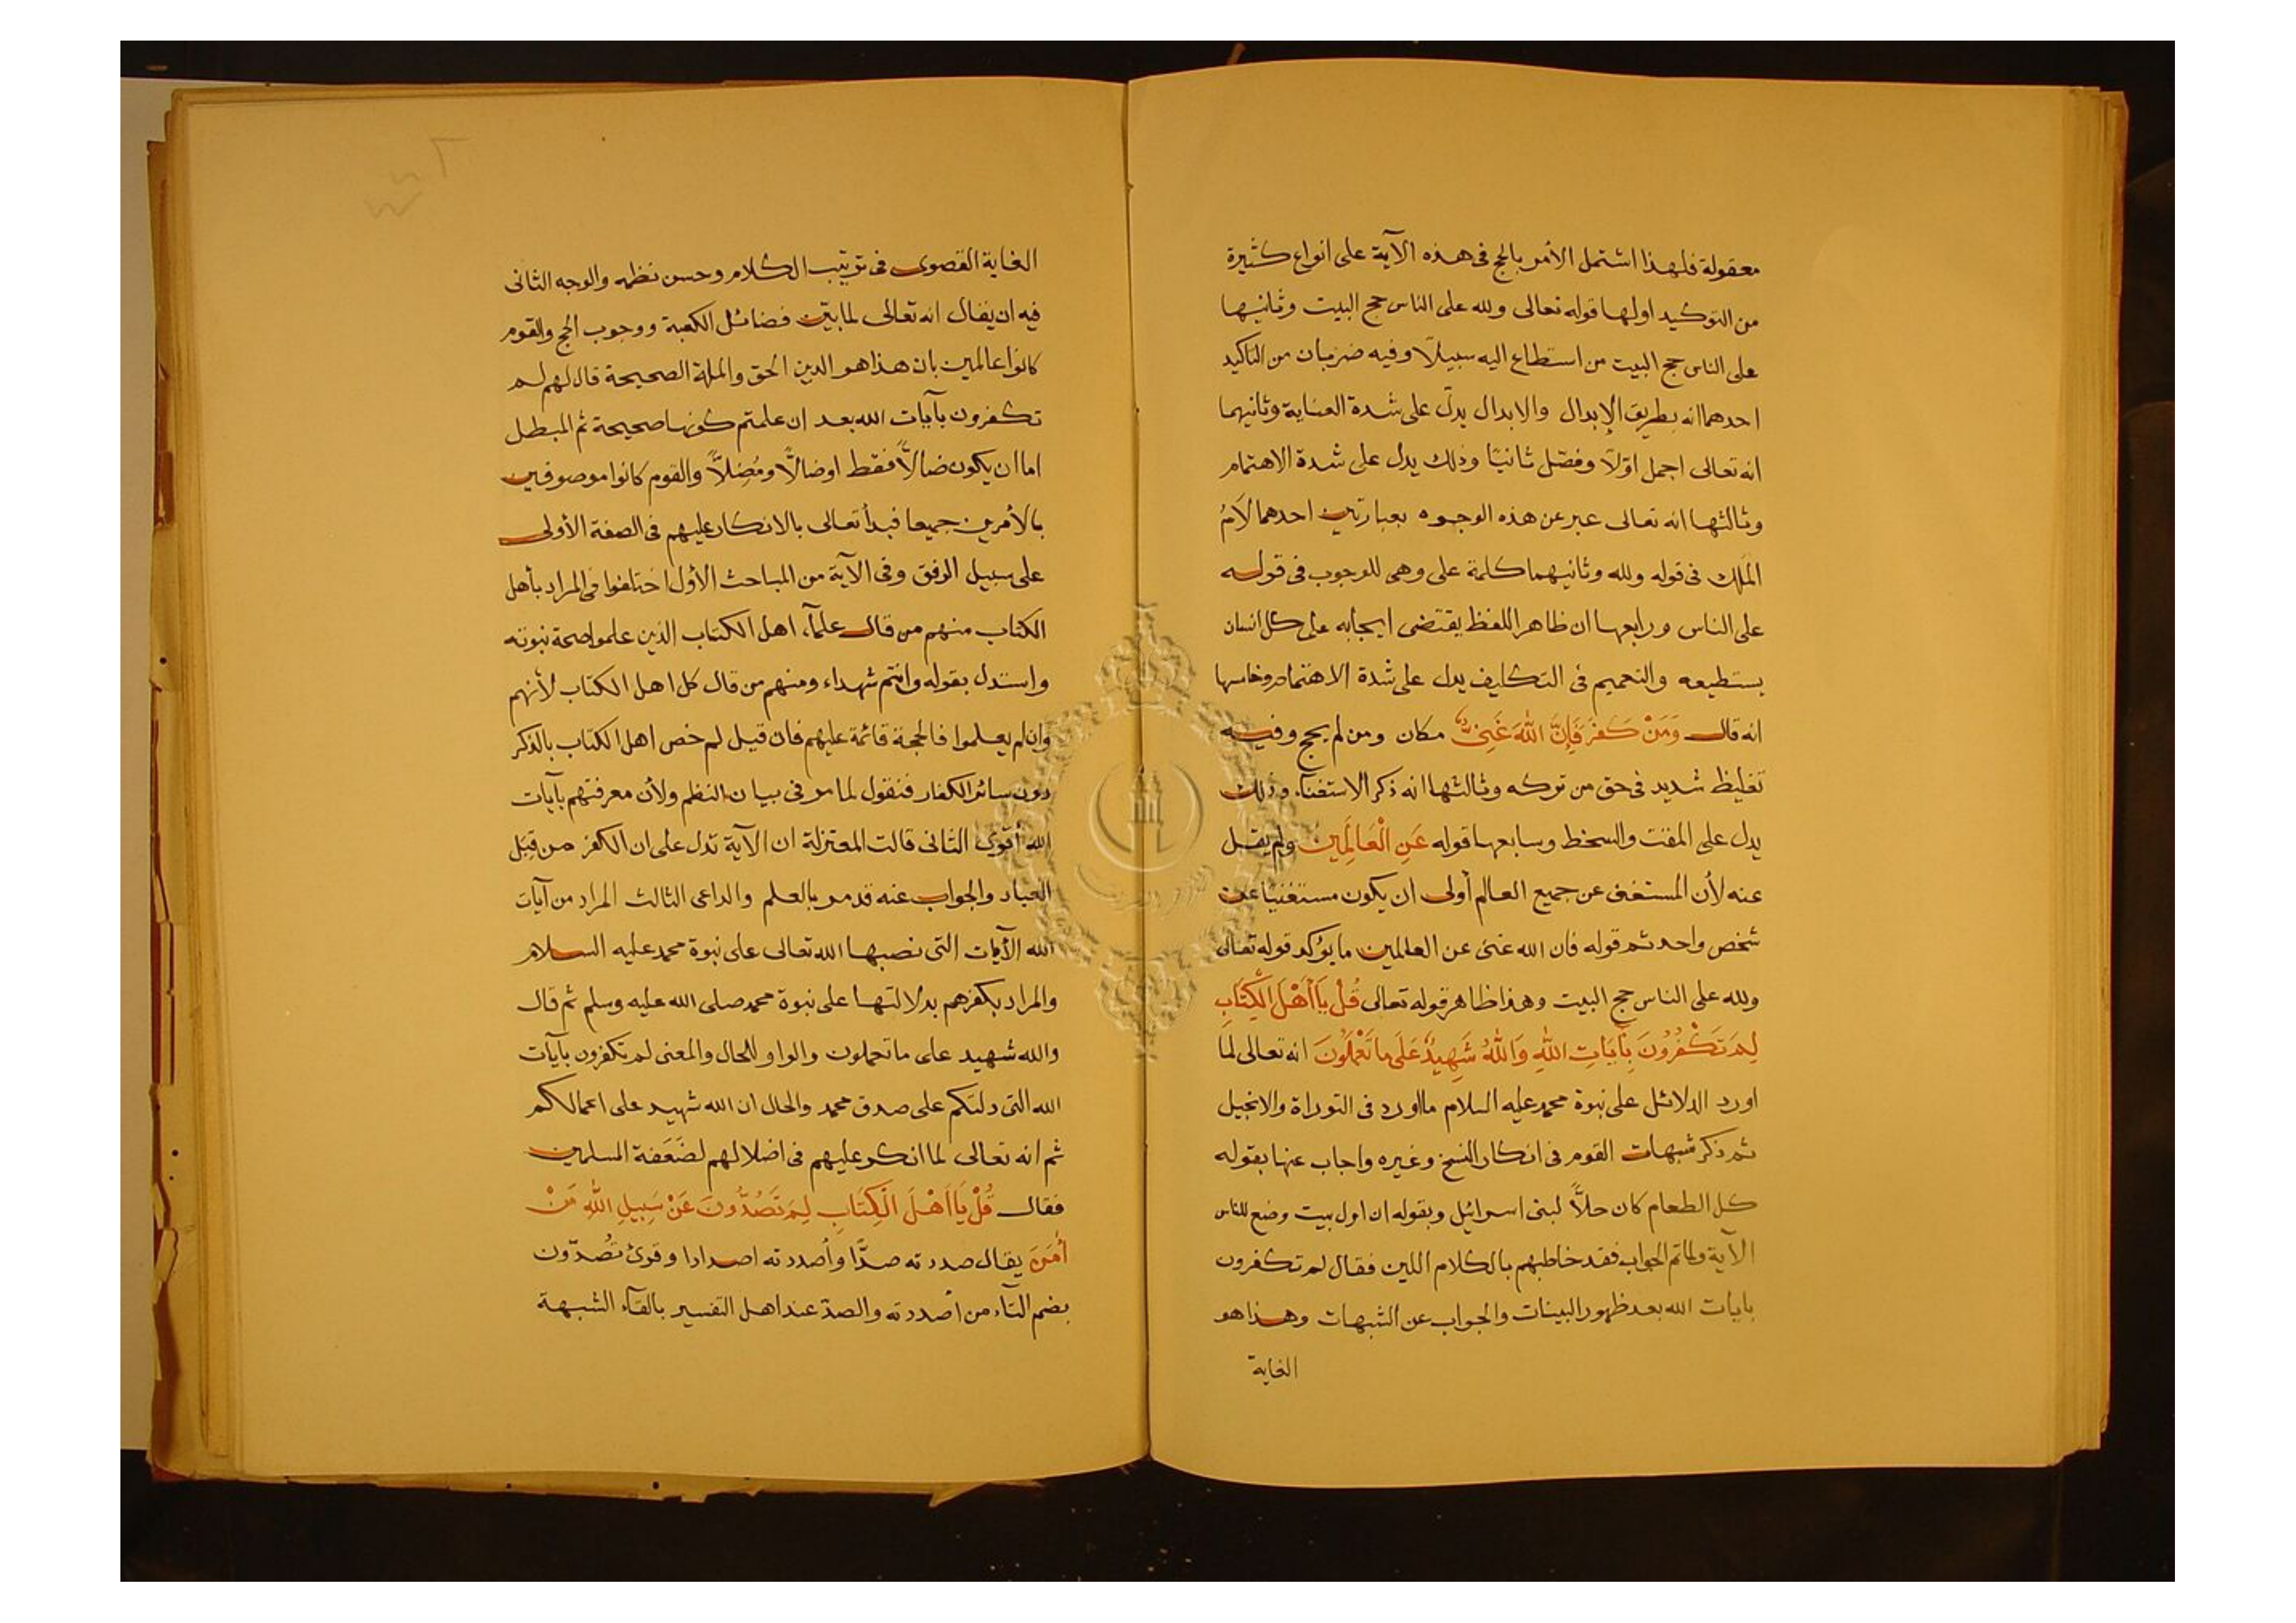 معقولة فلهذا اشتمل الأمر بالحج فى هذه الآية على انواع كثيرة
من التوكيد اولها قوله تعالى ولله على الناس حج البيت وثانيها
على الناس حج البيت من استطاع اليه سبيلًا وفيه ضربان من التاكيد
احدهما انه بطريق الإبدال والابدال يدلّ على شدة العناية وثانيهما
انه تعالى اجمل اوّلًا وفصّل ثانيًا وذلك يدل على شدة الاهتمام
وثالثها انه تعالى عبر عن هذه الوجوه بعبارتين احدهما لَامُ
المُلك فى قوله ولله وثانيهما كلمة على وهى للوجوب فى قوله
على الناس ورابعها ان ظاهر اللفظ يقتضى ايجابه على كل انسان
يستطيعه والتعميم فى التكليف يدل على شدة الاهتمام وخامسها
انه قال وَمَنْ كَفَرَ فَإِنَّ اللهَ غَنِىٌّ مكان ومن لم يحج وفيه
تغليظ شديد فى حق من تركه وثالثها انه ذكر الاستغنآء وذلك
يدل على المقت والسخط وسابعها قوله عَنِ الْعَالَمِينَ ولم يقل
عنه لأن المستغنى عن جميع العالم أولى ان يكون مستغنيًا عن
شخص واحد ثم قوله فان الله غنى عن العالمين ما يؤكد قوله تعالى
ولله على الناس حج البيت وهذا ظاهر قوله تعالى قُلْ يَا أَهْلَ الْكِتَابِ
لِمَ تَكْفُرُونَ بِآيَاتِ اللهِ وَاللهُ شَهِيدٌ عَلَى مَا تَعْمَلُونَ انه تعالى لمَّا
اورد الدلائل على نبوة محمد عليه السلام ما اورد فى التوراة والانجيل
ثم ذكر شبهات القوم فى انكار النسخ وغيره واجاب عنها بقوله
كل الطعام كان حلًّا لبنى اسرائيل وبقوله ان اول بيت وضع للناس
الآية ولما تم الجواب فقد خاطبهم بالكلام اللين فقال لم تكفرون
بايات الله بعد ظهور البينات والجواب عن الشبهات وهذا هو
الغاية
الغاية القصوى فى ترتيب الكلام وحسن نظمه والوجه الثانى
فيه ان يقال انه تعالى لما بيّن فضائل الكعبة ووجوب الحج والقوم
كانوا عالمين بان هذا هو الدين الحق والملة الصحيحة قال لهم لم
تكفرون بآيات الله بعد ان علمتم كونها صحيحة ثم المبطل
اما ان يكون ضالًّا فقط اوضالًّا ومُضلًّا والقوم كانوا موصوفين
بالأمرين جميعا فبدأ تعالى بالانكار عليهم فى الصفة الأولى
على سبيل الرفق وفى الآية من المباحث الأول اختلفوا فى المراد بأهل
الكتاب منهم من قال علمآء اهل الكتاب الذين علموا صحة نبوته
واستدل بقوله وانتم شهداء ومنهم من قال كل اهل الكتاب لأنهم
وان لم يعلموا فالحجة قائمة عليهم فان قيل لم خص اهل الكتاب بالذكر
دون سائر الكفار فنقول لما مر فى بيان النظم ولأن معرفتهم بآيات
الله أقوى الثانى قالت المعتزلة ان الآية تدل على ان الكفر من قِبَل
العباد والجواب عنه قد مر بالعلم والداعى الثالث المراد من آيات
الله الآيات التى نصبها الله تعالى على نبوة محمد عليه السلام
والمراد بكفرهم بدلالتها على نبوة محمد صلى الله عليه وسلم ثم قال
والله شهيد على ما تعملون والواو للحال والمعنى لم تكفرون بآيات
الله التى دلتكم على صدق محمد والحال ان الله شهيد على اعمالكم
ثم انه تعالى لما انكر عليهم فى اضلالهم لضَعَفة المسلمين
فقال قُلْ يَا اَهْلَ الْكِتَابِ لِمَ تَصُدُّونَ عَنْ سَبِيلِ اللهِ مَنْ
أَمَنَ يقال صددته صدًّا وأصددته اصدادا وقرئ تُصدّون
بضم التآء من أصددته والصدّ عند اهل التفسير بالقآء الشبهة